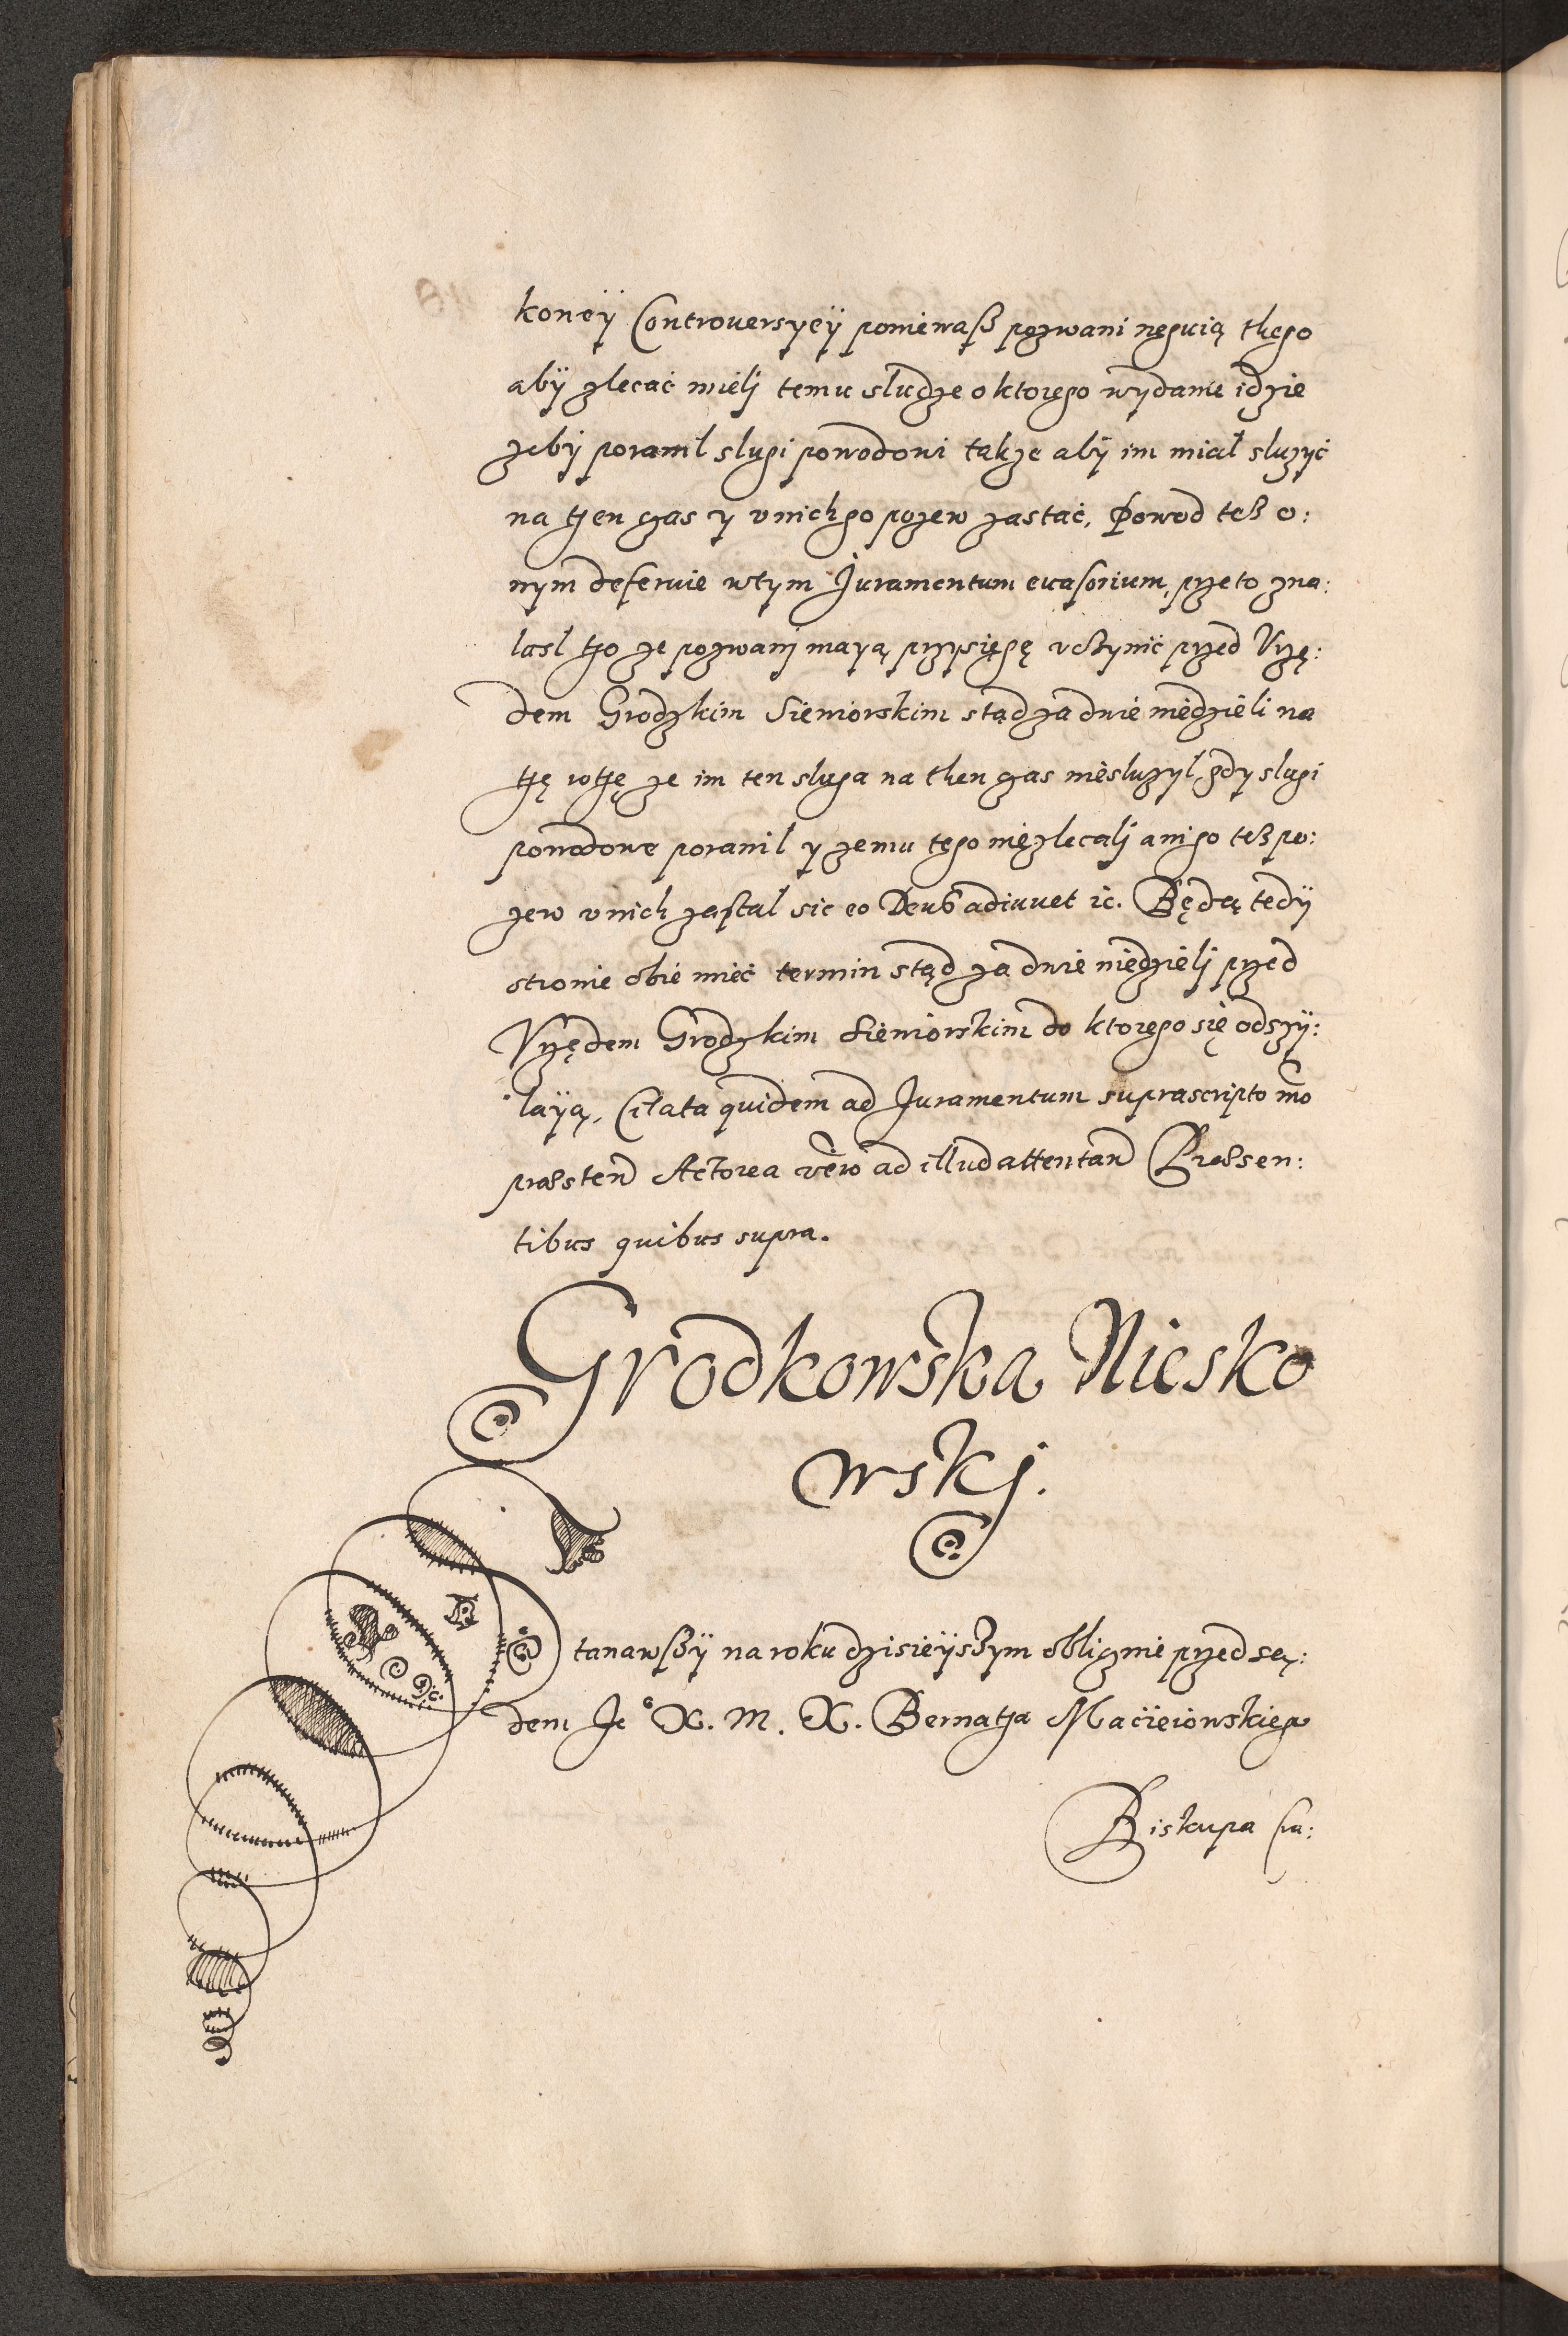 koney Controuersyey poniewaß pozwani neguią thego
aby zlecać mieli temu sludze o ktorego wydanie idzie
żeby poranil slugi powodowi takze aby im miał sluzyć
na then czas y v nich go pozew zastać, Powod teß o:
nym deferuie w tym Juramentum euasorium, przeto zna:
lasl tho ze pozwani mayą przysięgę vczynić przed Vrzę:
dem Grodzkim Siewiorskim stąd za dwie niedzieli na
thę rothę ze im ten sluga na then czas niesluzyl, gdy slugi
powodowe poranil y ze mu tego niezlecalj ani go teß po:
zew v nich zastal sic eo Deus adiuuet ic. Będą tedy
stronie obie mieć termin stąd za dwie niedzielj przed
Vrzędem Grodzkim Siewiorskim do ktorego się odszy:
laya, Citata quidem ad Juramentum suprascripto mo
praesten Actorea vero ad illud attentan Praesen:
tibus quibus supra.
Grodkowska Niesko
wskj.
Stanawßy na roku dzisieyszym oblicznie przed są:
dem Je° X. M. X. Bernatha Macieiowskiego
Biskupa Cra: